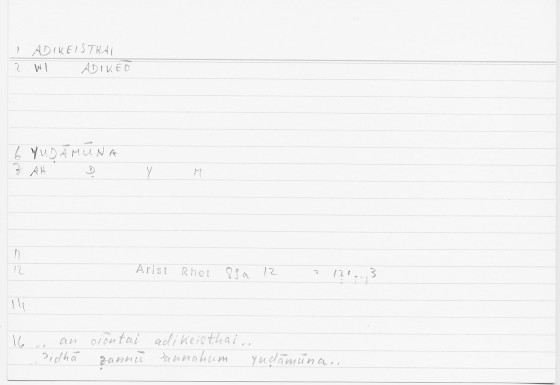 1 ADIKEISTHAI
2 WI ADIKEŌ
6 YUḌĀMŪNA
8 AH Ḍ Y M
11
12 Arist Rhet 89a 12
14
16 .. an oiōntai adikeisthai..
ẓannū annahum yuḍāmūna..